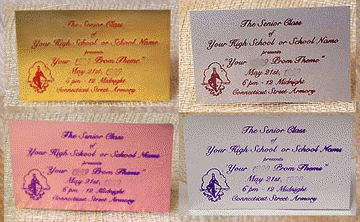 The Senior Class
of
Your High School or School Name
presents
"Your Prom Theme"
May 21st,
6 pm - 12 Midnight
Connecticut Street Armory
The Senior Class
of
Your High School or School Name
presents
"Your Prom Theme"
May 21st,
6 pm - 12 Midnight
Connecticut Street Armory
The Senior Class
of
Your High School or School Name
presents
"Your Prom Theme"
May 21st,
6 pm - 12 Midnight
Connecticut Street Armory
The Senior Class
of
Your High School or School Name
presents
"Your Prom Theme"
May 21st,
6 pm - 12 Midnight
Connecticut Street Armory